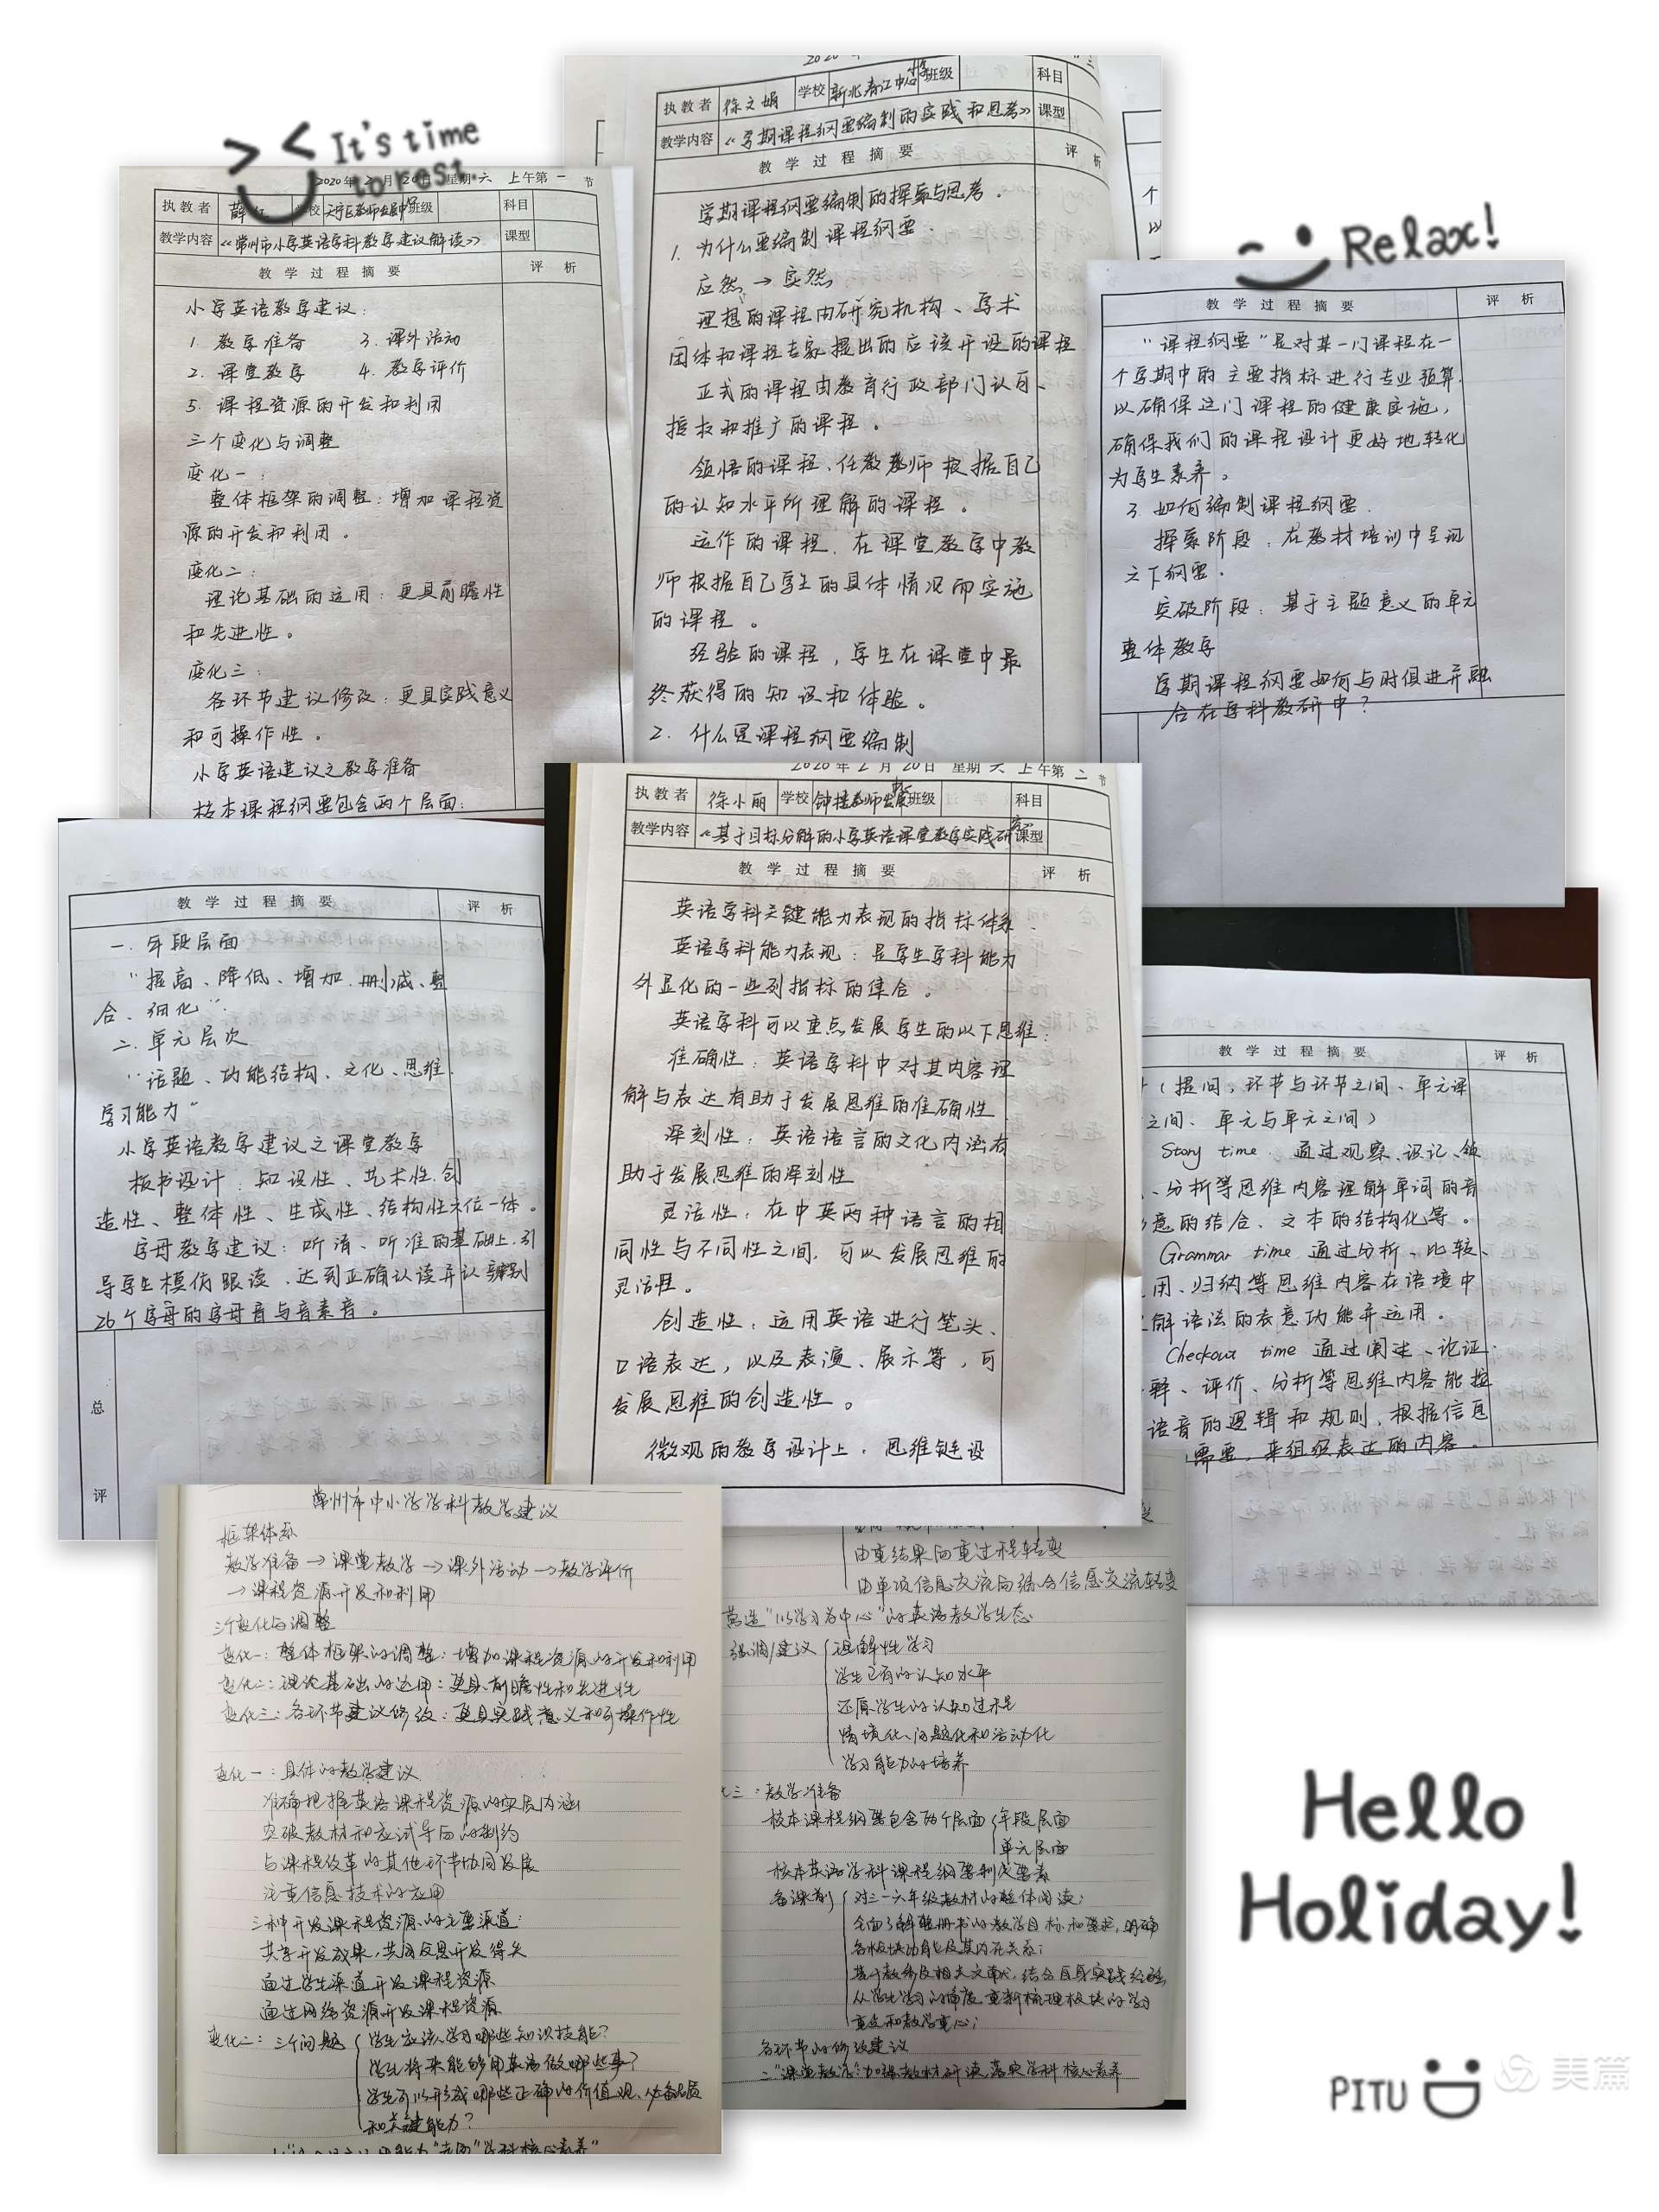 It's time
to rest.
2020年2月20日 星期六 上午第一节
执教者 薛 学校 班级 科目
教学内容 《常州市小学英语学科教学建议解读》 课型
教学过程摘要 评析
小学英语教学建议：
1. 教学准备 3. 课外活动
2. 课堂教学 4. 教学评价
5. 课程资源的开发和利用
三个变化与调整
变化一：
整体框架的调整：增加课程资
源的开发和利用。
变化二：
理论基础的运用：更具前瞻性
和先进性。
变化三：
各环节建议修改：更具实践意义
和可操作性。
小学英语建议之教学准备
校本课程纲要包含两个层面：
执教者 徐文娟 学校 新北春江中心小学 班级 科目
教学内容 《学期课程纲要编制的实践和思考》 课型
教学过程摘要 评析
学期课程纲要编制的探索与思考.
1. 为什么要编制课程纲要.
应然 → 实然
理想的课程由研究机构、学术
团体和课程专家提出的应该开设的课程
正式的课程由教育行政部门认可、
授权和推广的课程。
领悟的课程、任教教师根据自己
的认知水平所理解的课程。
运作的课程、在课堂教学中教
师根据自己学生的具体情况而实施
的课程。
经验的课程，学生在课堂中最
终获得的知识和体验。
2. 什么是课程纲要编制
Relax!
教学过程摘要 评析
"课程纲要"是对某一门课程在一
个学期中的主要指标进行专业预算.
以确保这门课程的健康实施，
确保我们的课程设计更好地转化
为学生素养。
3. 如何编制课程纲要.
探索阶段：在教材培训中呈现
之下纲要.
突破阶段：基于主题意义的单元
整体教学
学期课程纲要如何与时俱进并融
合在学科教研中？
教学过程摘要 评析
一. 年段层面
"提高、降低、增加、删减、整
合、细化".
二. 单元层次
"话题、功能结构、文化、思维.
学习能力"
小学英语教学建议之课堂教学
板书设计：知识性、艺术性、创
造性、整体性、生成性、结构性六位一体。
字母教学建议：听清、听准的基础上，引
导学生模仿跟读，达到正确认读并认辨别
26个字母的字母音与音素音。
总
评
2020年2月20日 星期六 上午第二节
执教者 徐小丽 学校 钟楼教师发展中心 班级 科目
教学内容 《基于目标分解的小学英语课堂教学实践研究》 课型
教学过程摘要 评析
英语学科关键能力表现的指标体系.
英语学科能力表现：是学生学科能力
外显化的一些列指标的集合。
英语学科可以重点发展学生的以下思维：
准确性：英语学科中对其内容理
解与表达有助于发展思维的准确性
深刻性：英语语言的文化内涵有
助于发展思维的深刻性
灵活性：在中英两种语言的相
同性与不同性之间，可以发展思维的
灵活性。
创造性：运用英语进行笔头、
口语表达，以及表演、展示等，可
发展思维的创造性。
微观的教学设计上，思维链设
教学过程摘要 评析
计（提问，环节与环节之间、单元课
之间、单元与单元之间）
Story time 通过观察、识记、
、分析等思维内容理解单词的音
意的结合、文本的结构化等。
Grammar time 通过分析、比较、
用、归纳等思维内容在语境中
解语法的表意功能并运用。
Checkout time 通过阐述、论证.
释、评价、分析等思维内容能按
语音的逻辑和规则，根据信息
需要，来组织表达的内容。
常州市中小学学科教学建议
框架体系
教学准备→课堂教学→课外活动→教学评价
→课程资源开发和利用
三个变化与调整
变化一：整体框架的调整：增加课程资源的开发和利用
变化二：理论基础的运用：更具前瞻性和先进性
变化三：各环节建议修改：更具实践意义和可操作性
变化一：具体的教学建议
准确把握英语课程资源的实质内涵
突破教材和应试导向的制约
与课程改革的其他环节协同发展
注重信息技术的应用
三种开发课程资源的主要渠道：
共享开发成果，共同反思开发得失
通过学生渠道开发课程资源
通过网络资源开发课程资源
变化二：三个问题 学生应该学习哪些知识技能？
学生将来能够用英语做哪些事？
学生可以形成哪些正确的价值观、必备品质
和关键能力？
由重结果向重过程转变
由单项信息交流向综合信息交流转变
营造"以学习为中心"的英语教学生态
强调/建议 理解性学习
学生已有的认知水平
还原学生的认知过程
情境化、问题化和活动化
学习能力的培养
化三：教学准备
校本课程纲要包含两个层面 年段层面
单元层面
校本英语学科课程纲要制式要素
备课前 对三—六年级教材的整体阅读；
全面了解整册书的教学目标和要求，明确
各板块功能及其内在关系；
基于教参及相关文献，结合自身实践经验
从学生学习的角度，重新梳理板块的学习
重点和教学重心；
各环节的修改建议
二"课堂教学"加强教材研读，落实学科核心素养
Hello
Holiday!
PITU
美篇